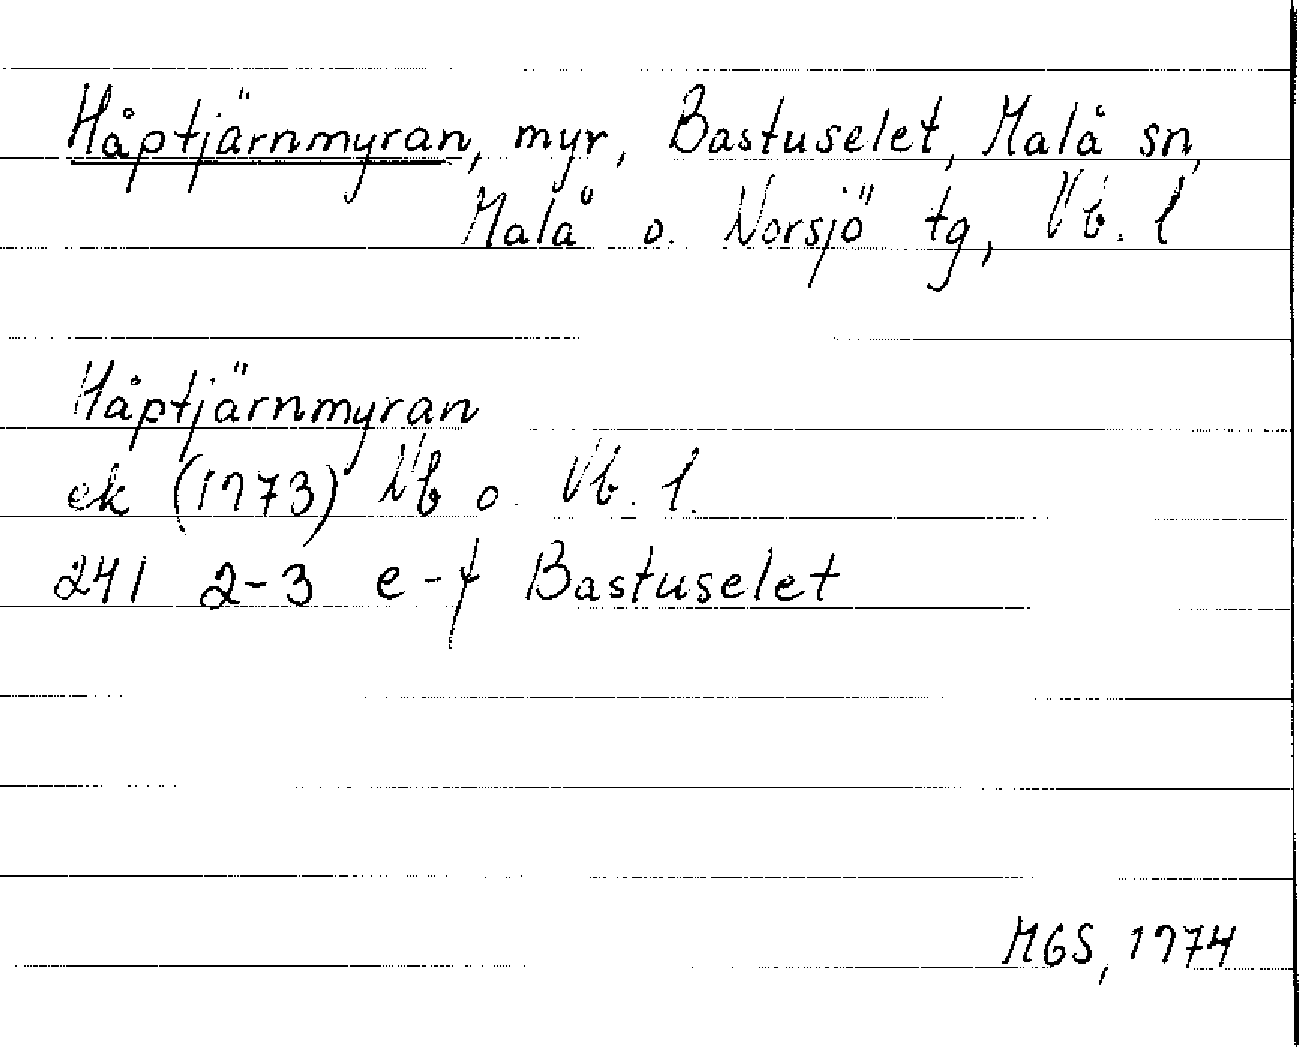 Håptjärnmyran, myr, Bastuselet, Malå sn,
Malå o. Norsjö tg, Vb. l
Håptjärnmyran
ek (1973) Nb o. Vb. l.
241 2-3 e-f Bastuselet
MGS, 1974